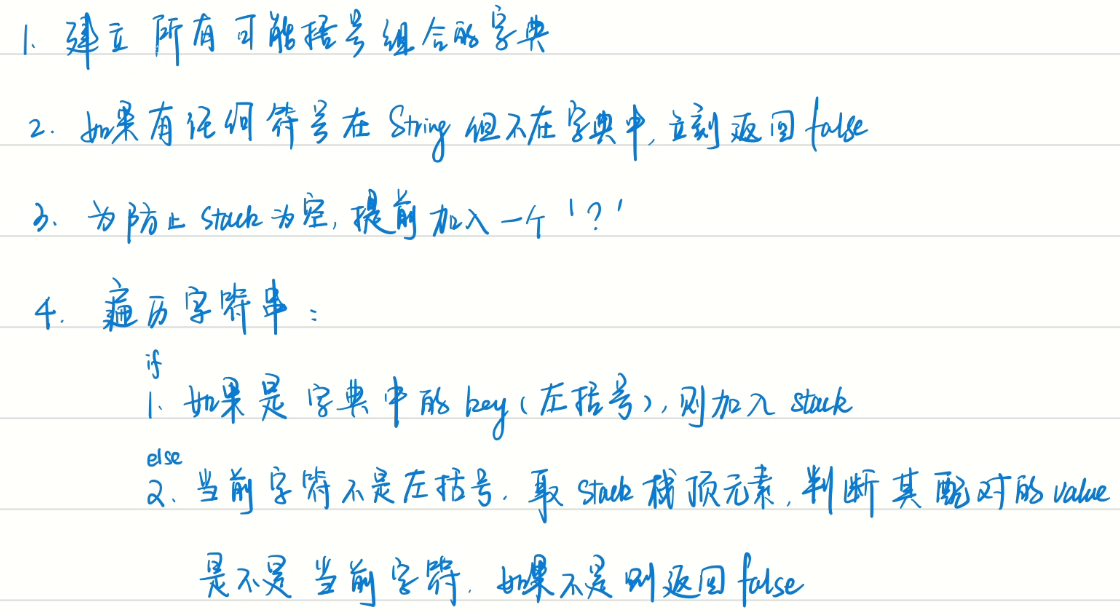 1. 建立 所有可能括号组合的字典
2. 如果有任何符号在 String 但不在字典中, 立刻返回 false
3. 为防止 stack 为空, 提前加入一个 '?'
4. 遍历字符串:
if
1. 如果是字典中的 key (左括号), 则加入 stack
else
2. 当前字符不是左括号. 取 stack 栈顶元素, 判断其配对的 value
是不是当前字符. 如果不是则返回 false